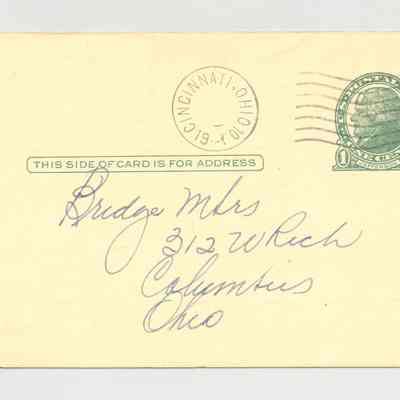 CINCINNATI, OHIO
THIS SIDE OF CARD IS FOR ADDRESS
Bridge Mkrs
312 W Rich
Columbus
Ohio